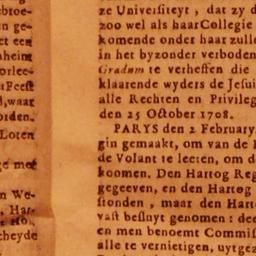 ebroe-
n ge-
et een
nheim
orlee-
t Feest
l, waar
orden.
Loten
ge met
n We-
, Har-
Hol.
cheyde
ze Universiteyt, dat zy d
zoo wel als haar Collegie
komende onder haar zulle
in het byzonder verboden
Gradum te verheffen die
klaarende wyders de Jesui
alle Rechten en Privileg
den 25 October 1708.
PARYS den 2 February
gin gemaakt, om van de
de Volant te leeren, om d
koomen. Den Hartog Reg
gegeeven, en den Hartog
stonden, maar den Hart
vast besluyt genomen: dee
en men benoemt Commis
alle te vernietigen, uytgez